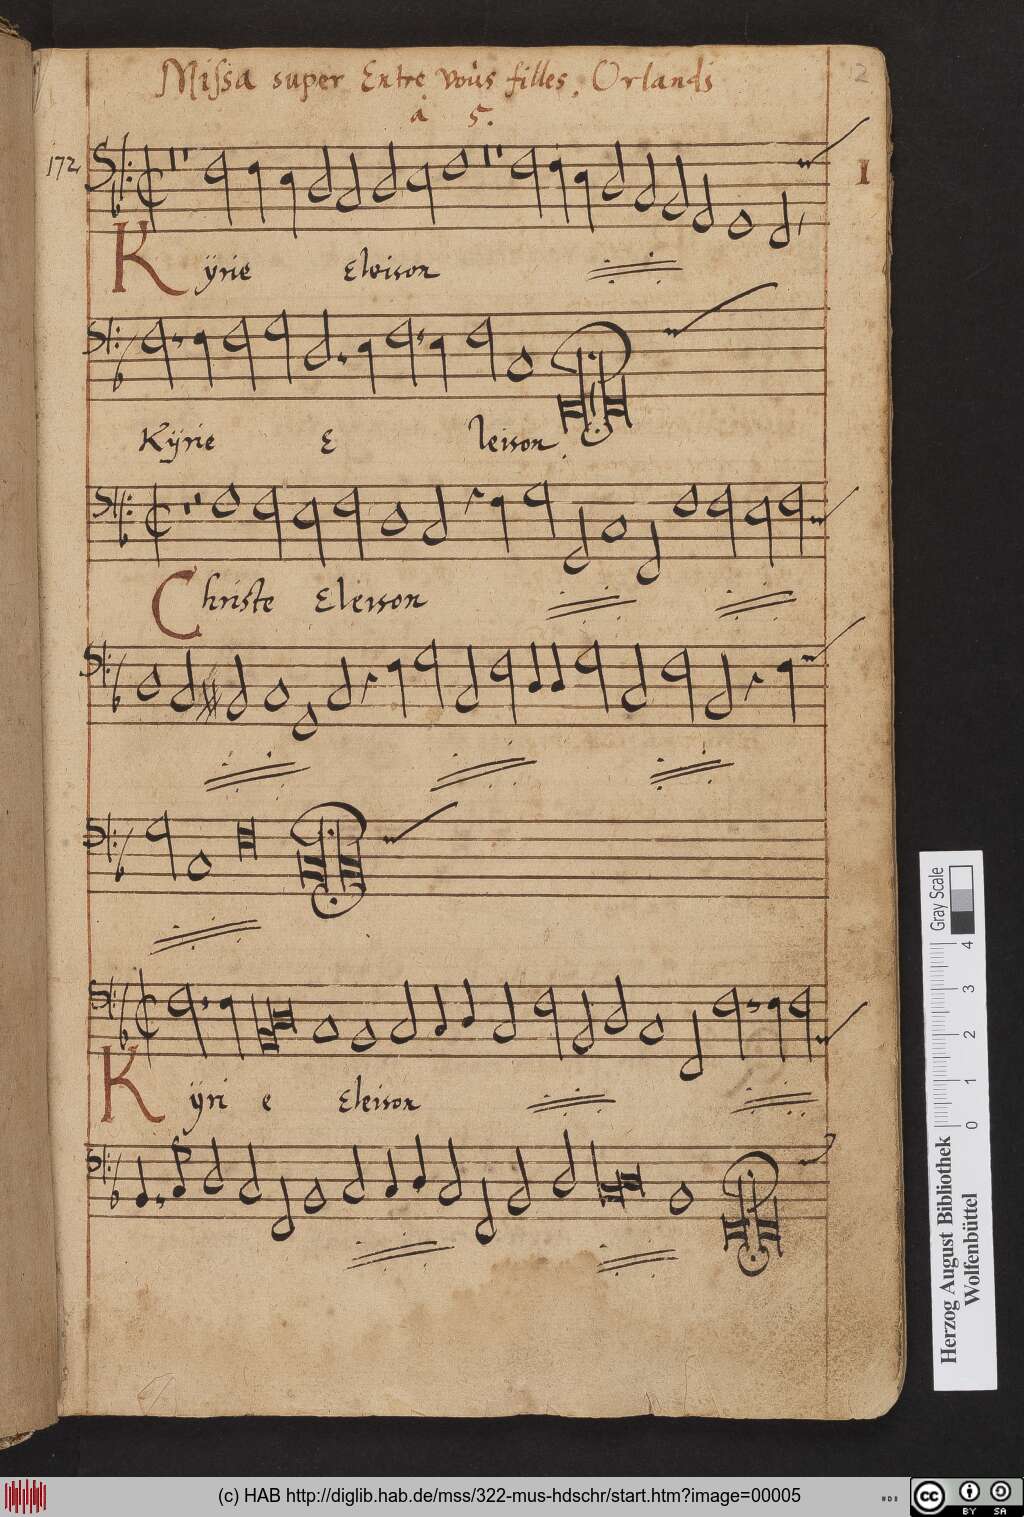 2
Missa super Entre voùs filles. Orlandi
à 5.
172.
I
Kÿrie Eleison
Kÿrie E leison.
Christe Eleison
Kÿri e Eleison
Gray Scale
0 1 2 3 4
Herzog August Bibliothek
Wolfenbüttel
(c) HAB http://diglib.hab.de/mss/322-mus-hdschr/start.htm?image=00005
cc BY SA